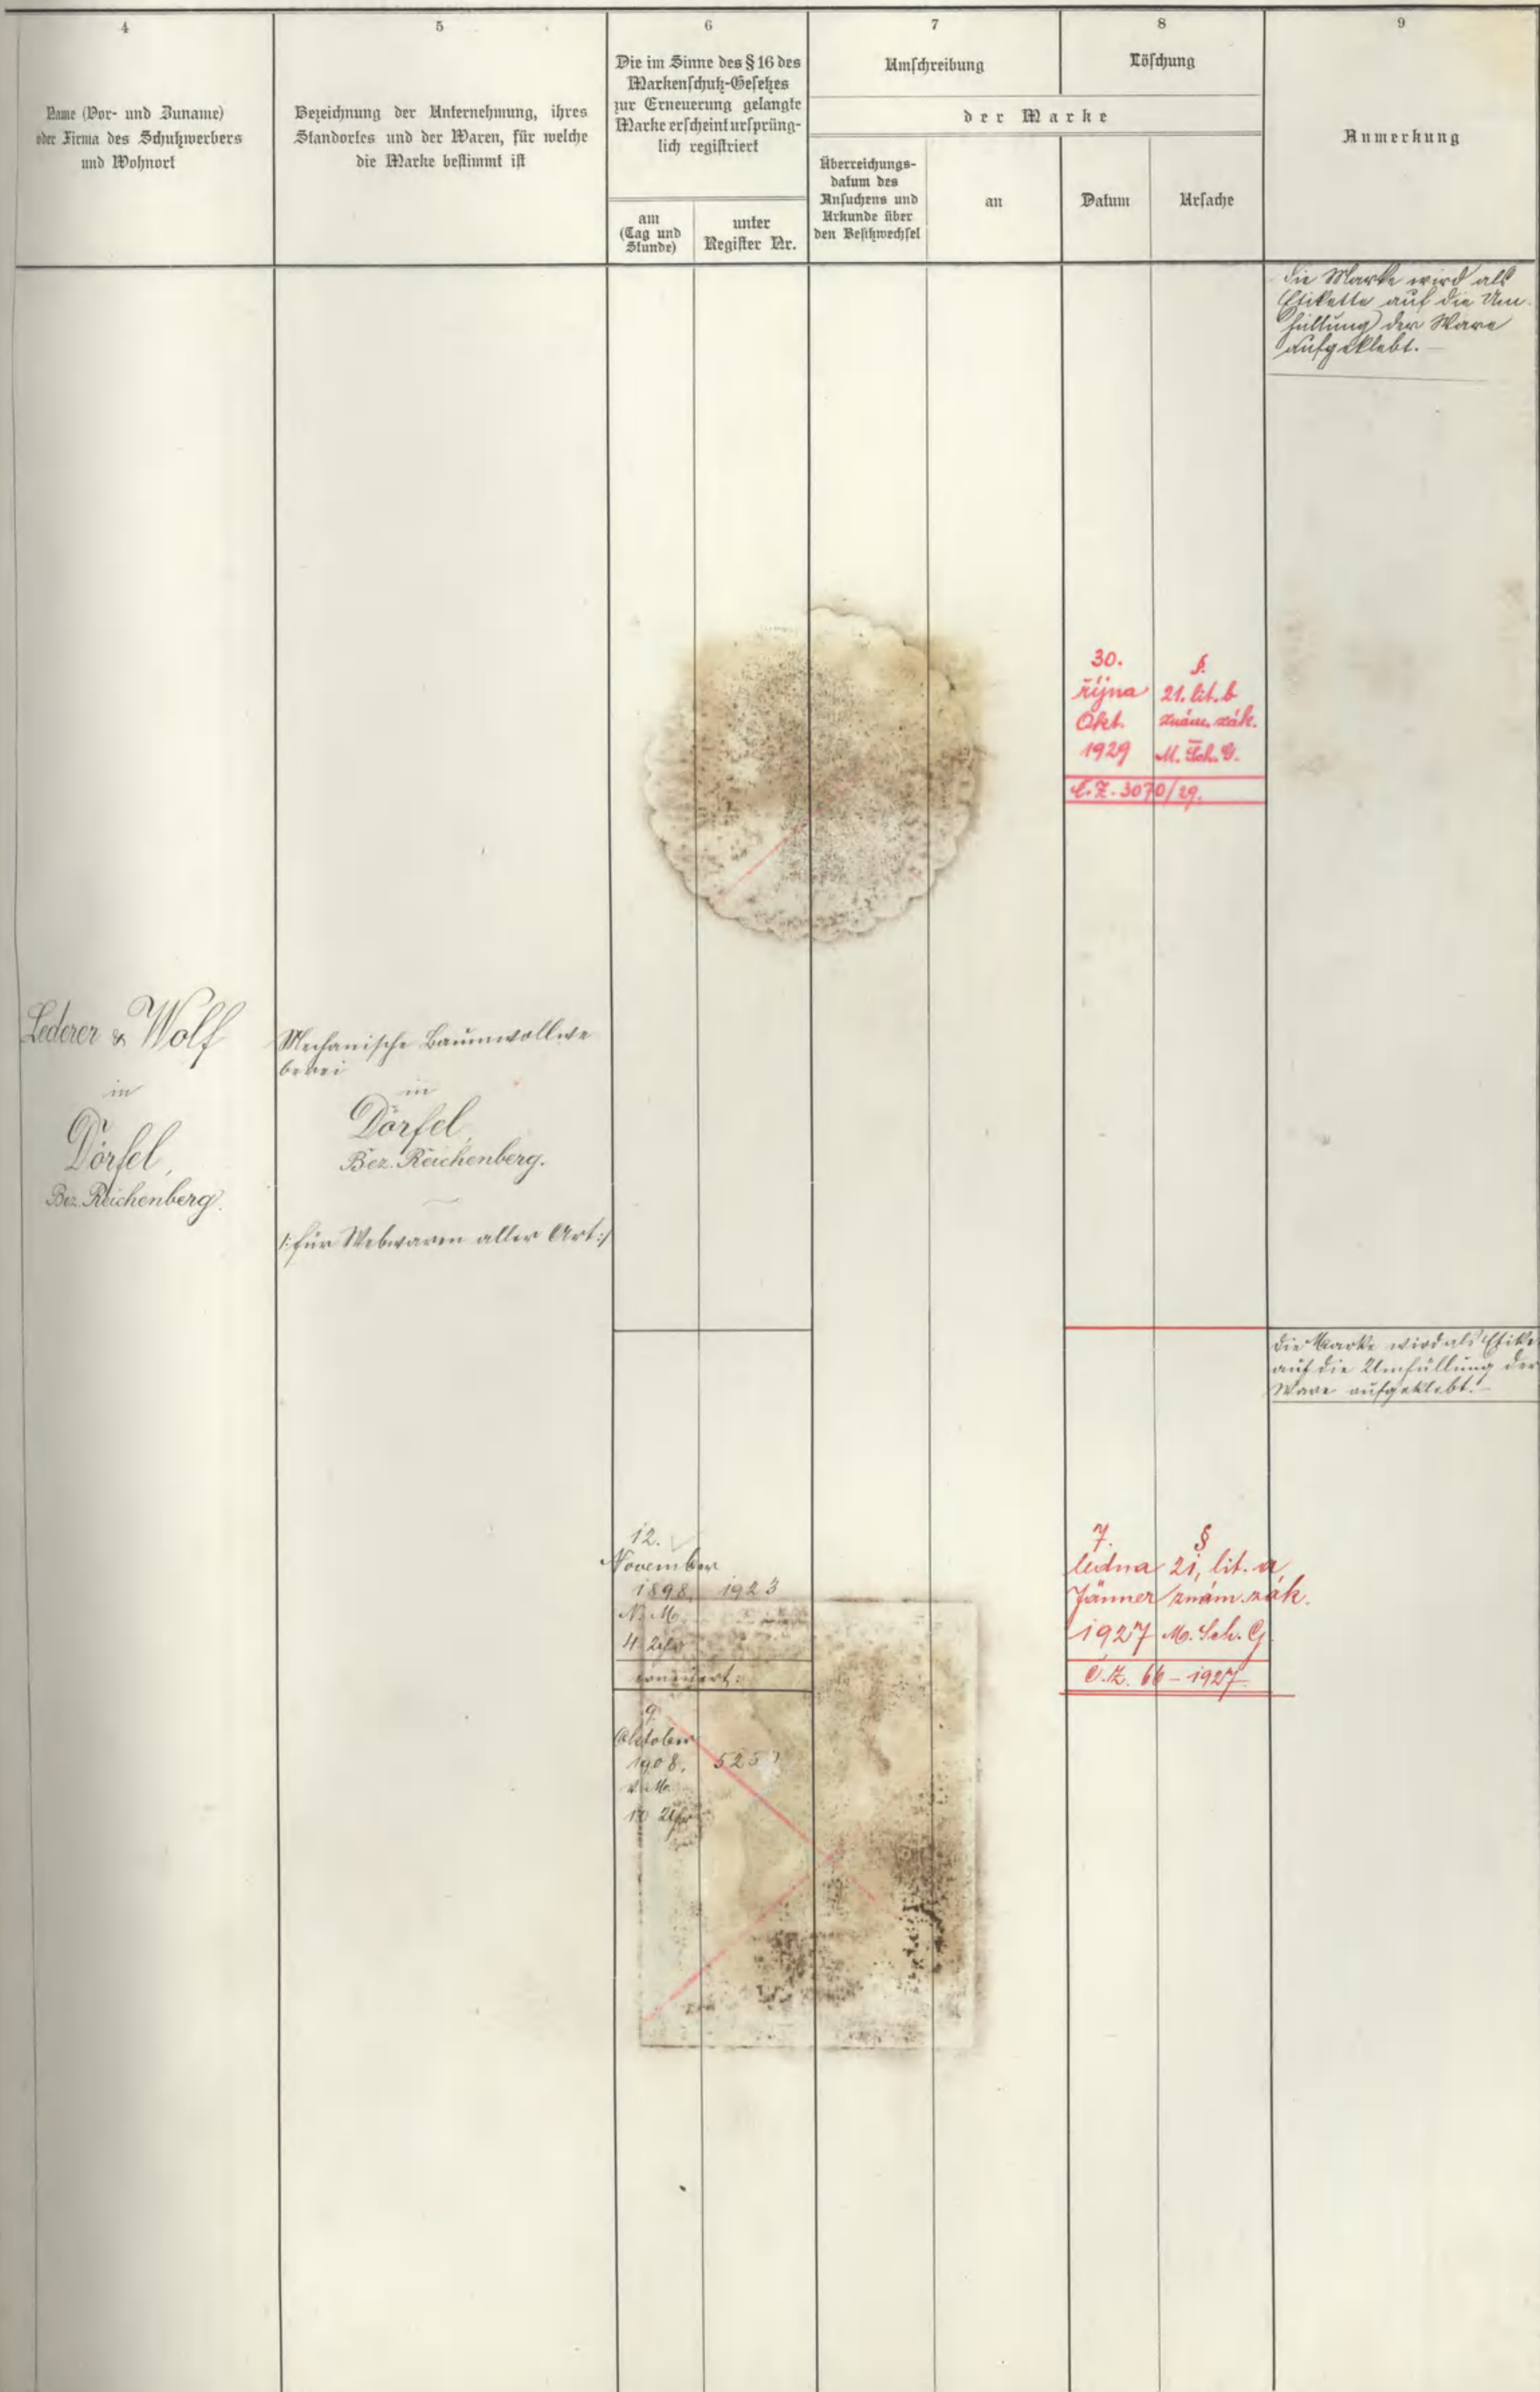 4
Name (Vor- und Zuname)
oder Firma des Schutzwerbers
und Wohnort
5
Bezeichnung der Unternehmung, ihres
Standortes und der Waren, für welche
die Marke bestimmt ist
6
Die im Sinne des § 16 des
Markenschutz-Gesetzes
zur Erneuerung gelangte
Marke erscheint ursprüng-
lich registriert
am
(Tag und
Stunde)
unter
Register Nr.
7
Umschreibung
8
Löschung
der Marke
Überreichungs-
datum des
Ansuchens und
Urkunde über
den Besitzwechsel
an
Datum
Ursache
9
Anmerkung
die Marke wird als
Etikette auf die Um-
hüllung der Ware
aufgeklebt.—
30.
října
Okt.
1929
§.
21. lit. b
znám. zák.
M. Sch. G.
Č.Z. 3070/29.
Lederer & Wolf
in
Dörfel,
Bez. Reichenberg.
Mechanische Baumwollwe
berei
in
Dörfel,
Bez. Reichenberg.
/:für Webwaren aller Art:/
die Marke wird als Etike
auf die Umhüllung der
Ware aufgeklebt.—
12.
November
1898, 1923
N. M.
4 Uhr
erneuert:
9.
Oktober
1908,
V. M.
10 Uhr
7.
ledna
Jänner
1927
§
21, lit. a
znám. zák.
M. Sch. G.
Č.Z. 66 – 1927